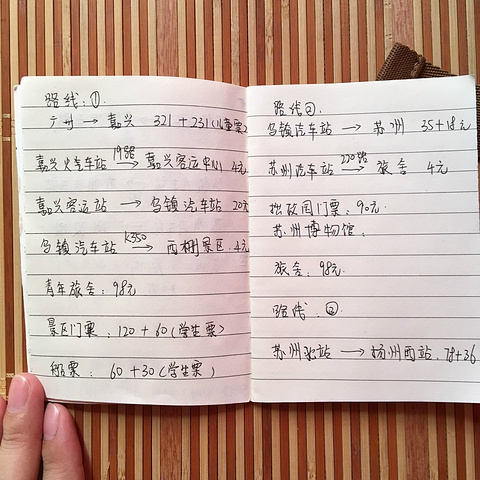 路线:①
广州 → 嘉兴 321 + 231(儿童票)
嘉兴火汽车站 19路→ 嘉兴客运中心 4元
嘉兴客运站 → 乌镇汽车站 20元
乌镇汽车站 K350→ 西栅景区 4元
青年旅舍:98元
景区门票:120 + 60(学生票)
船票:60 + 30(学生票)
路线②
乌镇汽车站 → 苏州 35+18元
苏州汽车站 220路→ 旅舍 4元
拙政园门票:90元
苏州博物馆:
旅舍:98元
路线:③
苏州北站 → 扬州西站 78+36